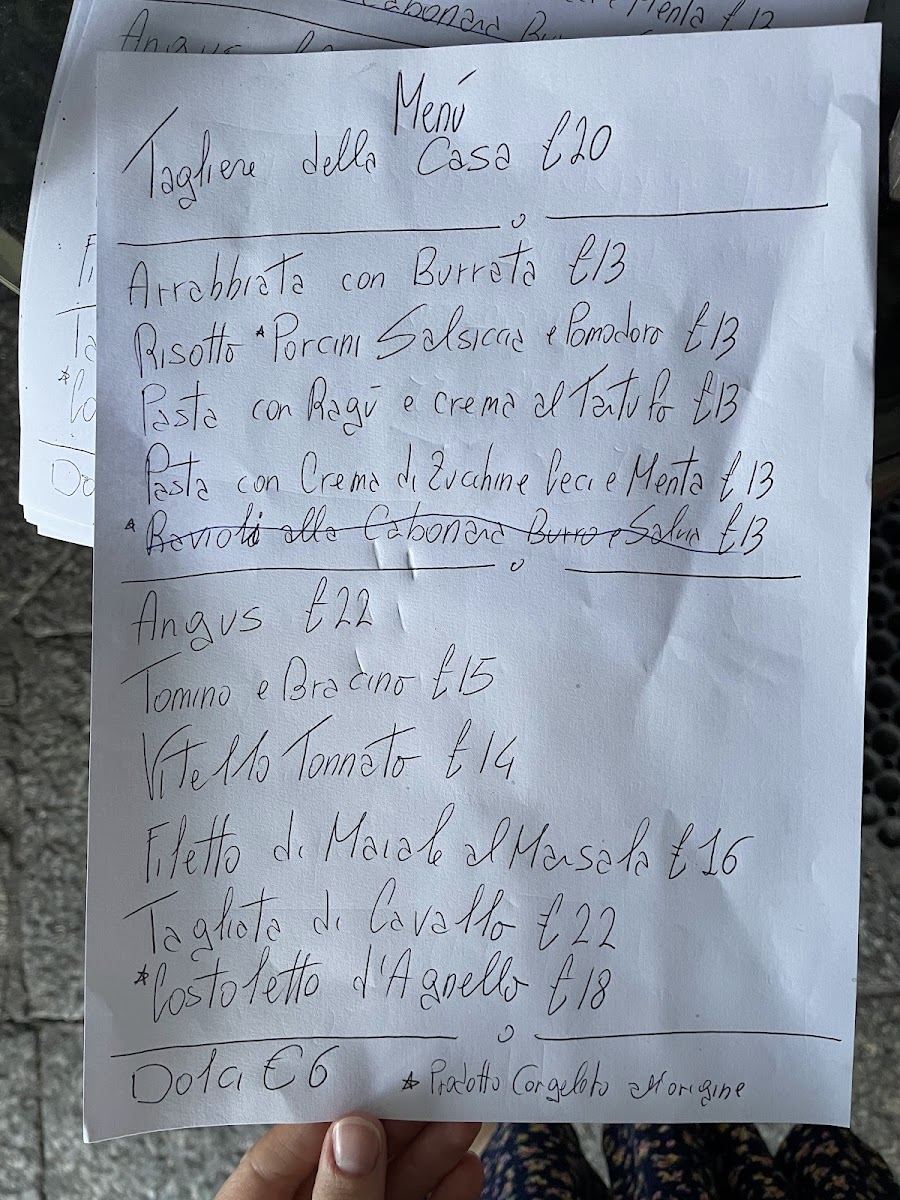 Cabonara Bu Menta €13
Angus
Menú
Tagliere della Casa €20
Arrabbiata con Burrata €13
Risotto *Porcini Salsiccia e Pomodoro €13
Pasta con Ragū e crema al Tartufo €13
Pasta con Crema di Zucchine Ceci e Menta €13
*Ravioli alla Cabonara Burro e Salvia €13
Angus €22
Tomino e Bracino €15
Vitello Tonnato €14
Filetto di Maiale al Marsala €16
Tagliata di Cavallo €22
*Costoletto d'Agnello €18
Dolci €6
* Prodotto Congelato all'origine